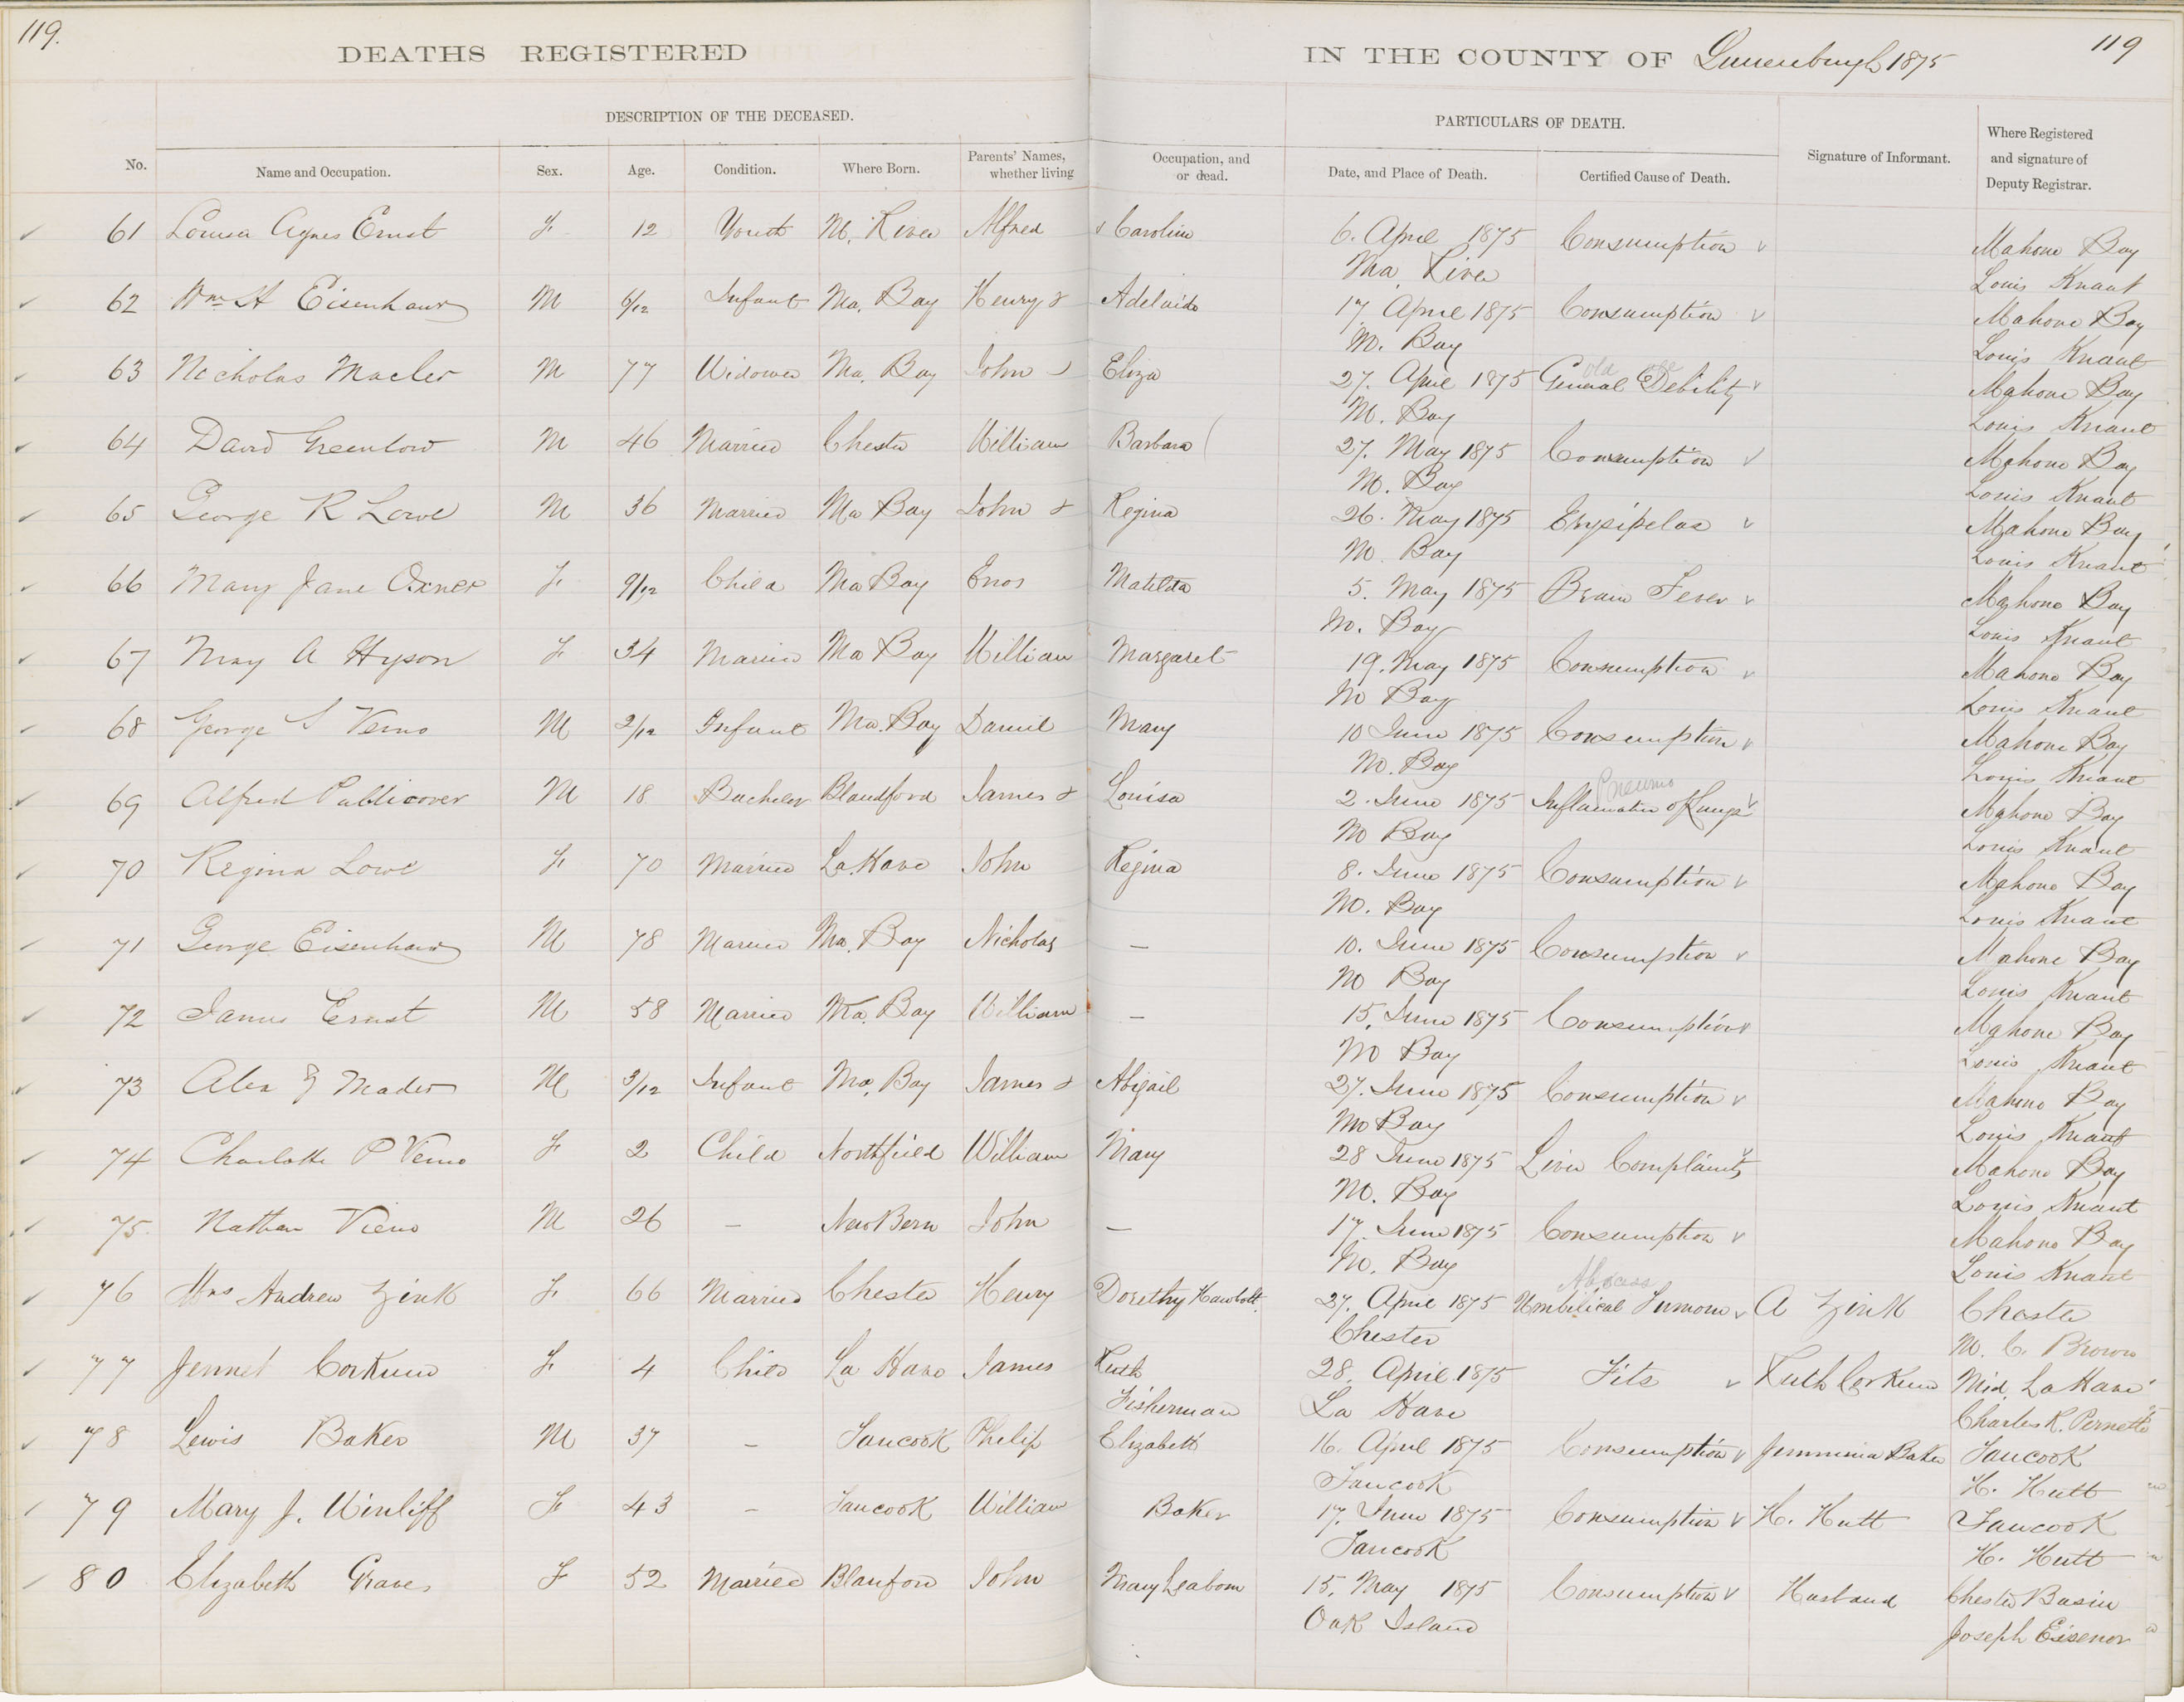 119.
DEATHS REGISTERED
IN THE COUNTY OF Lunenburgh 1875
119
DESCRIPTION OF THE DECEASED.
PARTICULARS OF DEATH.
No.
Name and Occupation.
Sex.
Age.
Condition.
Where Born.
Parents' Names, whether living
Occupation, and or dead.
Date, and Place of Death.
Certified Cause of Death.
Signature of Informant.
Where Registered and signature of Deputy Registrar.
61 Louisa Agnes Ernst F 12 Youth M. River Alfred & Caroline 6. April 1875 Consumption Mahone Bay
Ma River Louis Knaut
62 Wm H Eisenhaur M 6/12 Infant Ma. Bay Henry & Adelaide 17 April 1875 Consumption Mahone Bay
M. Bay Louis Knaut
63 Nicholas Mader M 77 Widower Ma. Bay John & Eliza 27. April 1875 General Debility old age Mahone Bay
M. Bay Louis Knaut
64 David Greenlow M 46 Married Chester William Barbara 27. May 1875 Consumption Mahone Bay
M. Bay Louis Knaut
65 George R Lowe M 36 Married Ma Bay John & Regina 26. May 1875 Erysipelas Mahone Bay
M. Bay Louis Knaut
66 Mary Jane Oxner F 9/12 Child Ma Bay Enos Matilda 5. May 1875 Brain Fever Mahone Bay
M. Bay Louis Knaut
67 May A Hyson F 34 Married Ma Bay William Margaret 19. May 1875 Consumption Mahone Bay
M Bay Louis Knaut
68 George S Veino M 2/12 Infant Ma. Bay Daniel Mary 10 June 1875 Consumption Mahone Bay
M. Bay Louis Knaut
69 Alfred Publicover M 18 Bachelor Blandford James & Louisa 2. June 1875 Inflamation of Lungs Pneumo Mahone Bay
M Bay Louis Knaut
70 Regina Lowe F 70 Married La Have John Regina 8. June 1875 Consumption Mahone Bay
M. Bay Louis Knaut
71 George Eisenhaur M 78 Married Ma. Bay Nicholas — 10. June 1875 Consumption Mahone Bay
M Bay Louis Knaut
72 James Ernst M 58 Married Ma. Bay William — 15. June 1875 Consumption Mahone Bay
M Bay Louis Knaut
73 Alex Mader M 3/12 Infant Ma. Bay James & Abigail 27. June 1875 Consumption Mahone Bay
M Bay Louis Knaut
74 Charlotte P Veino F 2 Child Northfield William Mary 28 June 1875 Liver Complaint Mahone Bay
M. Bay Louis Knaut
75. Nathan Vieno M 26 — New Bern John — 17 June 1875 Consumption Mahone Bay
M. Bay Louis Knaut
76 Mrs Andrew Zink F 66 Married Chester Henry Dorethy Hawbolt. 27. April 1875 Umbilical Tumour Abscess A Zink Chester
Chester M. C. Brown
77 Jennet Corkum F 4 Child La Have James Ruth 28. April 1875 Fits Ruth Corkum Mid. La Have
Fisherman La Have Charles R. Pernette
78 Lewis Baker M 37 — Tancook Philip Elizabeth 16. April 1875 Consumption Jemmima Baker Tancook
Tancook H. Hutt
79 Mary J. F 43 — Tancook William Baker 17. June 1875 Consumption H. Hutt Tancook
Tancook H. Hutt
80 Elizabeth Graves F 52 Married Blanford John Mary 15. May 1875 Consumption Husband Chester Basin
Oak Island Joseph Eisenor